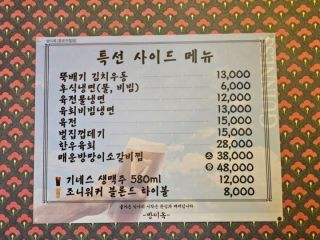 특선 사이드 메뉴
뚝배기 김치우동 13,000
후식냉면(물, 비빔) 6,000
육전물냉면 12,000
육회비빔냉면 13,000
육전 15,000
벌집껍데기 15,000
한우육회 28,000
매운방망이소갈비찜 소 38,000
중 48,000
기네스 생맥주 580ml 12,000
조니워커 블론드 하이볼 8,000